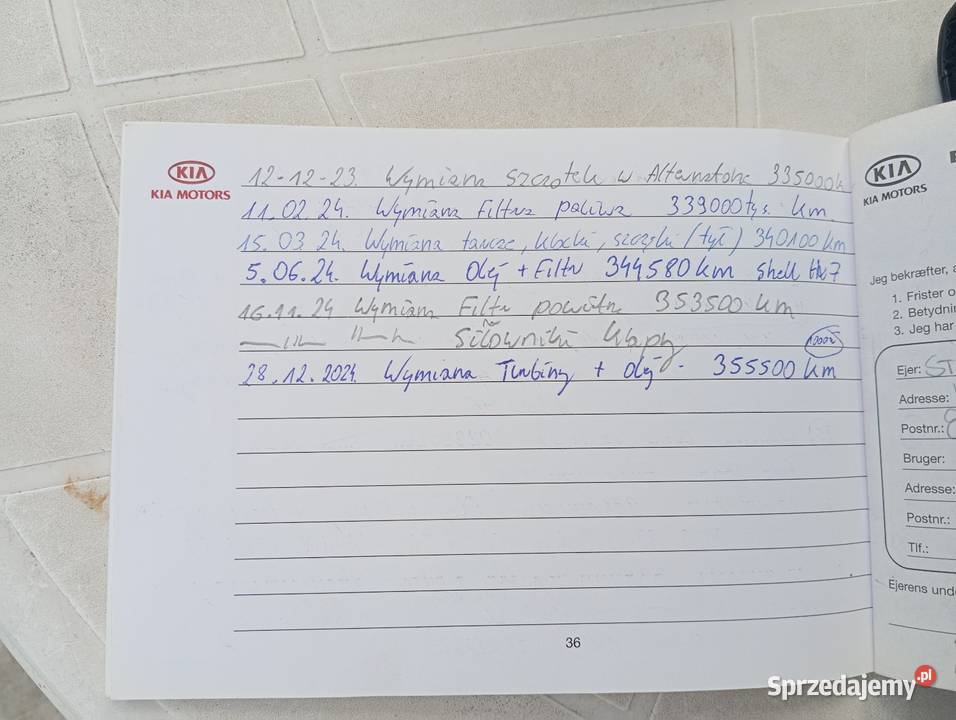 KIA
KIA MOTORS
12-12-23. Wymiana Szczotek w Alternatorze 335000k
11.02.24. Wymiana Filtra paliwa 339000 tys. km
15.03 24. Wymiana tarcze, klocki, szczęki (tył) 340100 km
5.06.24. Wymiana Olej + Filtr 344580 km Shell Hx7
16.11.24 Wymiana Filtr powietrza 353500 km
—11— 11— Siłowniki klapy
28.12.2024. Wymiana Turbiny + olej - 355500 km
36
KIA
KIA MOTORS
Jeg bekræfter, a
1. Frister o
2. Betydnin
3. Jeg har
Ejer: ST
Adresse:
Postnr.:
Bruger:
Adresse:
Postnr.:
Tlf.:
Ejerens und
Sprzedajemy.pl